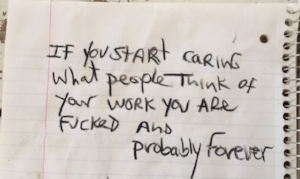 IF YOU START CARING
WHAT people THINK OF
YOUR WORK YOU ARE
FUCKED AND
probably Forever